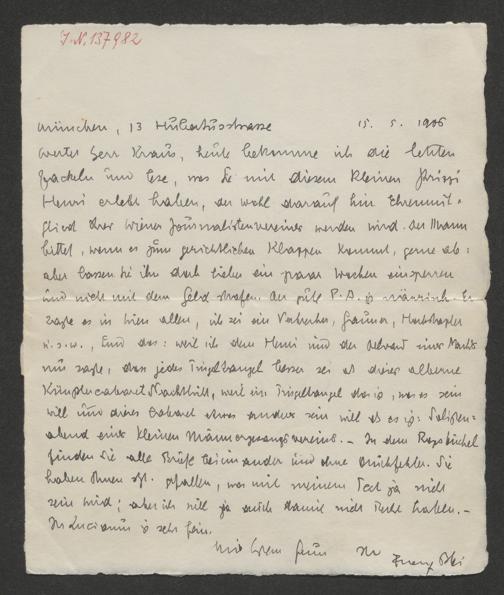 J.N. 137.982
München, 13 Hubertusstrasse 15. 5. 1906
Werter Herr Kraus, heute bekomme ich die letzten
Fackeln und lese, was Sie mit diesem kleinen
Henri erlebt haben, der wohl darauf hin Ehrenmit-
glied des Wiener Journalistenvereines werden wird. Der Mann
bittet, wenn es zum gerichtlichen Klappen kommt, gerne ab:
aber lassen Sie ihn doch lieber ein paar Wochen einsperren
und nicht mit dem Geld strafen. Der gute P. A. is närrisch. Er
sagte es in Wien allen, ich sei ein Verbrecher, Gauner,
u.s.w., und das: weil ich dem Henri und der
nur sagte, dass jedes Tingeltangel besser sei als dieses alberne
Künstlercabaret Nachtlicht, weil ein Tingeltangel das is, was es sein
will und dieses Cabaret etwas anders sein will als es is:
abend eines kleinen Männergesangsvereins. – In dem
finden Sie alle Briefe beieinander und ohne Druckfehler. Sie
haben Ihnen gefallen, was mit meinem Text ja nicht
sein wird; aber ich will ja auch damit nicht Recht haben. –
Ihr Lucianus is sehr fein.
Mit Ihr
Franz Blei